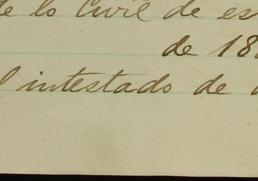 de lo Civil de es
de 18
intestado de